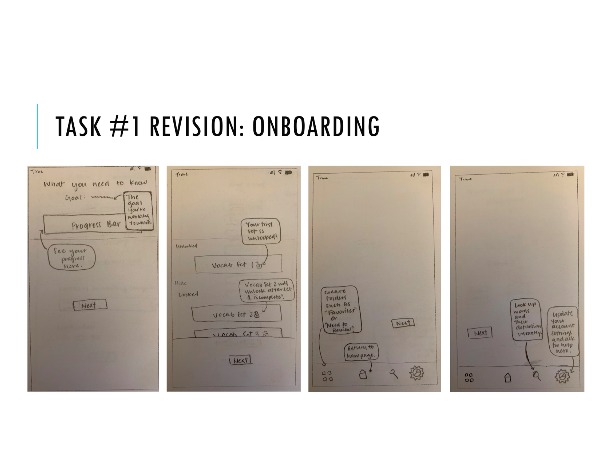 TASK #1 REVISION: ONBOARDING
Time
What you need to know
Goal:
The
goal
you're
working
toward.
Progress Bar
See your
progress
here.
Next
Time
Your first
set is
unlocked!
Unlocked
Vocab Set 1
Vocab Set 2 will
unlock after Set
1 is complete!
Locked
Vocab Set 2
Vocab Set
Next
Time
folders
such as
"Favorites"
or
"Need to
Next
Return to
home page.
Time
Next
Look up
words
and
their
definitions
Update
your
account
settings
and ask
for help
here.